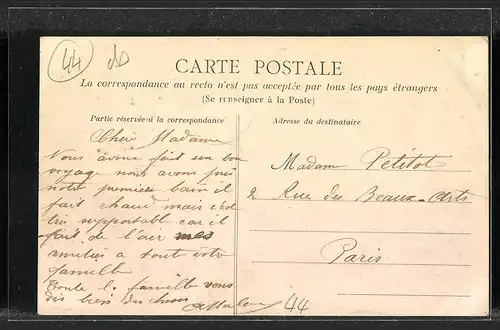 44
CARTE POSTALE
La correspondance au recto n'est pas acceptée par tous les pays étrangers
(Se renseigner à la Poste)
Partie réservée à la correspondance
Adresse du destinataire
Cher Madame
Nous avons fait un bon
voyage nous avons pris
notre premiere bain il
fait chaud mais c'est
supportable car il
fait de l'air mes
amities a tout votre
famille
Toute la famille vous
dis bien des
Madam Petitot
2 Rue des Beaux-Arts
Paris
44